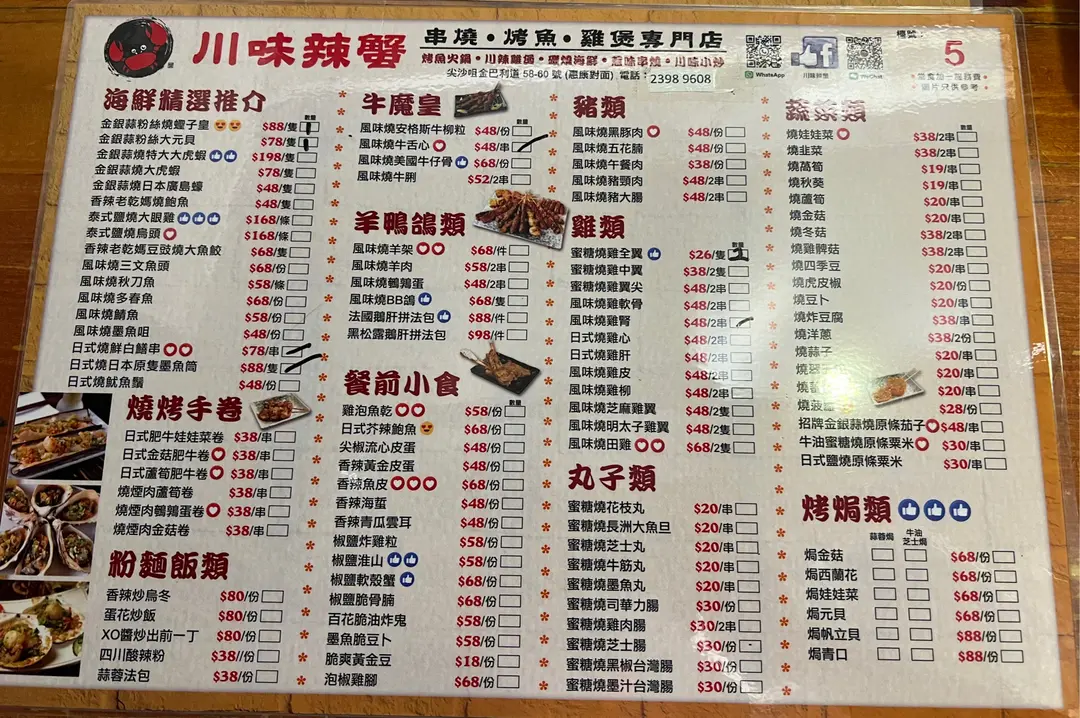 川味辣蟹
串燒・烤魚・雞煲專門店
烤魚火鍋・川辣雞煲・碳燒海鮮・惹味串燒・川味小炒
尖沙咀金巴利道 58-60 號 (惠康對面) 電話: 2398 9608
WhatsApp
川辣鮮蟹
WeChat
檯號:
5
川味辣蟹
海鮮精選推介
數量
金銀蒜粉絲燒蟶子皇 $88/隻
金銀蒜粉絲大元貝 $78/隻
金銀蒜燒特大大虎蝦 $198/隻
金銀蒜燒大虎蝦 $78/隻
金銀蒜燒日本廣島蠔 $48/隻
香辣老乾媽燒鮑魚 $48/隻
泰式鹽燒大眼雞 $168/條
泰式鹽燒烏頭 $168/條
香辣老乾媽豆豉燒大魚鮫 $68/隻
風味燒三文魚頭 $68/份
風味燒秋刀魚 $58/條
風味燒多春魚 $68/份
風味燒鯖魚 $58/份
風味燒墨魚咀 $48/份
日式燒鮮白鱔串 $78/串
日式燒日本原隻墨魚筒 $88/隻
日式燒魷魚鬚 $48/份
燒烤手卷
日式肥牛娃娃菜卷 $38/串
日式金菇肥牛卷 $38/串
日式蘆筍肥牛卷 $38/串
燒煙肉蘆筍卷 $38/串
燒煙肉鵪鶉蛋卷 $38/串
燒煙肉金菇卷 $38/串
粉麵飯類
香辣炒烏冬 $80/份
蛋花炒飯 $80/份
XO醬炒出前一丁 $80/份
四川酸辣粉 $38//份
蒜蓉法包 $38/份
牛魔皇
數量
風味燒安格斯牛柳粒 $48/份
風味燒牛舌心 $48/串
風味燒美國牛仔骨 $68/份
風味燒牛脷 $52/2串
羊鴨鴿類
風味燒羊架 $68/件
風味燒羊肉 $58/2串
風味燒鵪鶉蛋 $48/2串
風味燒BB鴿 $68/隻
法國鵝肝拼法包 $88/件
黑松露鵝肝拼法包 $98/件
餐前小食
數量
雞泡魚乾 $58/份
日式芥辣鮑魚 $68/份
尖椒流心皮蛋 $48/份
香辣黃金皮蛋 $48/份
香辣魚皮 $68/份
香辣海蜇 $48/份
香辣青瓜雲耳 $48/份
椒鹽炸雞粒 $58/份
椒鹽進山 $58/份
椒鹽軟殼蟹 $68/份
椒鹽脆骨腩 $68/份
百花脆油炸鬼 $58/份
墨魚脆豆卜 $58/份
脆爽黃金豆 $18/份
泡椒雞腳 $68/份
豬類
風味燒黑豚肉 $48/份
風味燒五花腩 $48/份
風味燒午餐肉 $38/份
風味燒豬頸肉 $48/2串
風味燒豬大腸 $48/2串
雞類
數量
蜜糖燒雞全翼 $26/隻 1
蜜糖燒雞中翼 $38/2隻
蜜糖燒雞翼尖 $48/2串
風味燒雞軟骨 $48/2串
風味燒雞腎 $48/2串
日式燒雞心 $48/2串
日式燒雞肝 $48/2串
風味燒雞皮 $48/2串
風味燒雞柳 $48/2串
風味燒芝麻雞翼 $48/2隻
風味燒明太子雞翼 $48/2隻
風味燒田雞 $68/2隻
丸子類
蜜糖燒花枝丸 $20/串
蜜糖燒長洲大魚旦 $20/串
蜜糖燒芝士丸 $20/串
蜜糖燒牛筋丸 $20/串
蜜糖燒墨魚丸 $20/串
蜜糖燒司華力腸 $30/份
蜜糖燒雞肉腸 $30/2串
蜜糖燒芝士腸 $30/份
蜜糖燒黑椒台灣腸 $30/份
蜜糖燒墨汁台灣腸 $30/份
蔬菜類
數量
燒娃娃菜 $38/2串
燒韭菜 $38/2串
燒萵筍 $19/串
燒秋葵 $19/串
燒蘆筍 $20/串
燒金菇 $20/串
燒冬菇 $38/2串
燒雞髀菇 $38/2串
燒四季豆 $20/串
燒虎皮椒 $20/份
燒豆卜 $20/串
燒炸豆腐 $38/串
燒洋蔥 $38/2份
燒蒜子 $20/串
燒 $20/串
燒 $20/串
燒菠 $28/份
招牌金銀蒜燒原條茄子 $48/串
牛油蜜糖燒原條粟米 $30/串
日式鹽燒原條粟米 $30/串
烤焗類
蒜蓉焗 牛油芝士焗
焗金菇 $68/份
焗西蘭花 $68/份
焗娃娃菜 $68/份
焗元貝 $68/份
焗帆立貝 $88/份
焗青口 $88/份